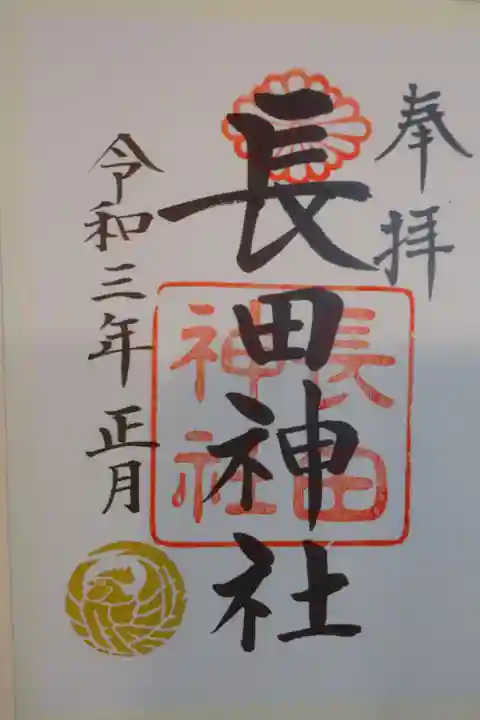 奉拝
長田神社
長田
神社
令和三年正月